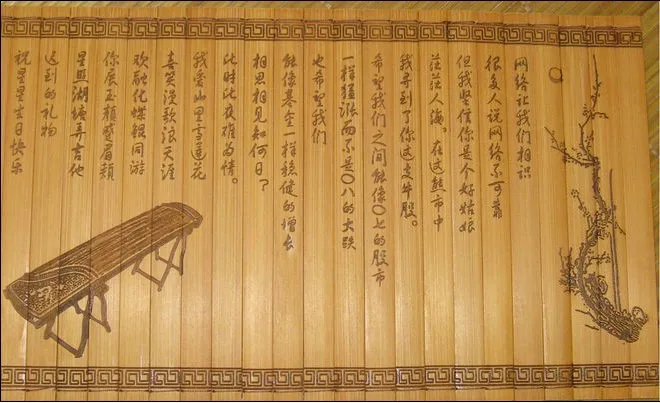 网络让我们相识
很多人说网络不可靠
但我坚信你是个好姑娘
茫茫人海。在这熊市中
我寻到了你这支牛股。
希望我们之间能像〇七的股市
一样猛涨而不是〇八的大跌
也希望我们
能像基金一样稳健的增长
相思相见知何日？
此时此夜难为情。
我爱山里雪莲花
喜笑漫歌浪天涯
欢融化蝶锦同游
你展玉颜蹙眉颊
星照湖塘弄吉他
迟到的礼物
祝星星生日快乐